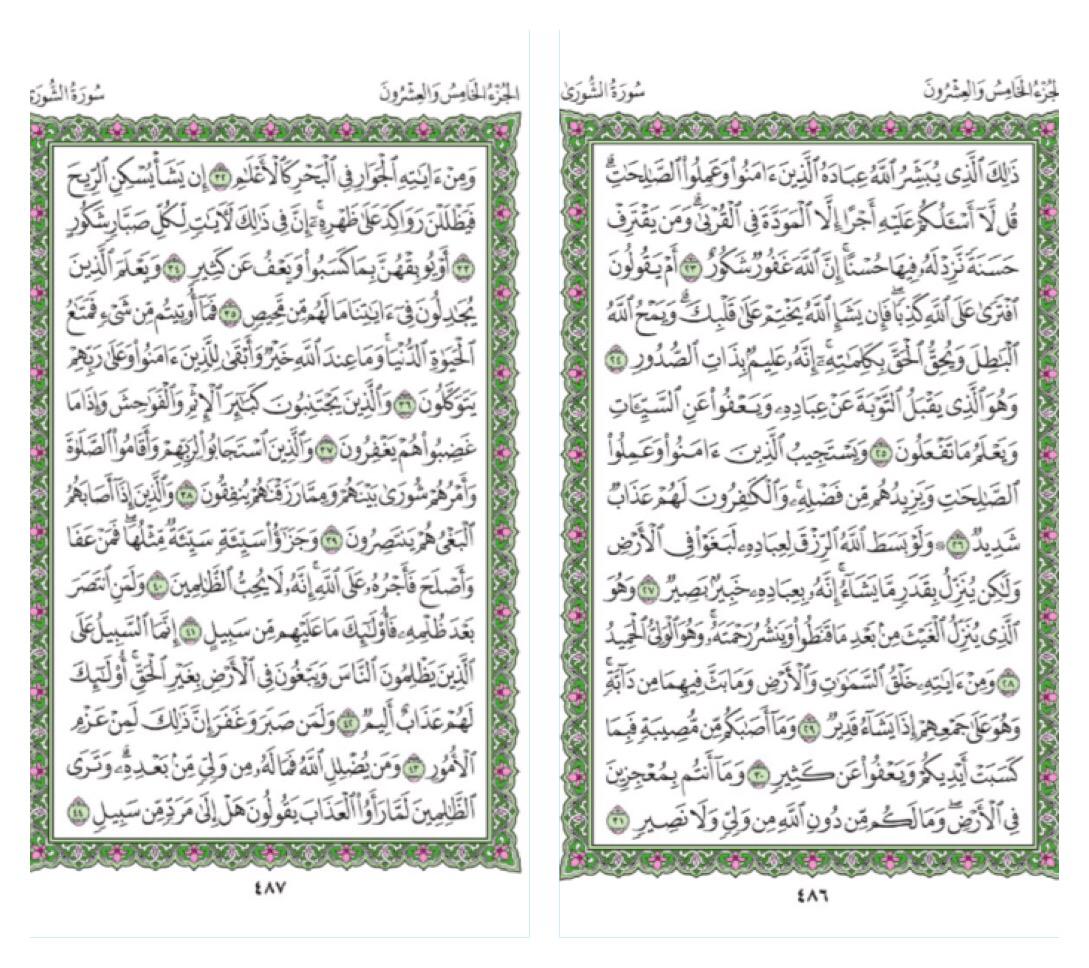 الجزء الخامس والعشرون
سورة الشورى
ذَٰلِكَ ٱلَّذِى يُبَشِّرُ ٱللَّهُ عِبَادَهُ ٱلَّذِينَ ءَامَنُوا۟ وَعَمِلُوا۟ ٱلصَّٰلِحَٰتِ ۗ
قُل لَّآ أَسْـَٔلُكُمْ عَلَيْهِ أَجْرًا إِلَّا ٱلْمَوَدَّةَ فِى ٱلْقُرْبَىٰ ۗ وَمَن يَقْتَرِفْ
حَسَنَةً نَّزِدْ لَهُۥ فِيهَا حُسْنًا ۚ إِنَّ ٱللَّهَ غَفُورٌ شَكُورٌ ٢٣ أَمْ يَقُولُونَ
ٱفْتَرَىٰ عَلَى ٱللَّهِ كَذِبًا ۖ فَإِن يَشَإِ ٱللَّهُ يَخْتِمْ عَلَىٰ قَلْبِكَ ۗ وَيَمْحُ ٱللَّهُ
ٱلْبَٰطِلَ وَيُحِقُّ ٱلْحَقَّ بِكَلِمَٰتِهِۦٓ ۚ إِنَّهُۥ عَلِيمٌۢ بِذَاتِ ٱلصُّدُورِ ٢٤
وَهُوَ ٱلَّذِى يَقْبَلُ ٱلتَّوْبَةَ عَنْ عِبَادِهِۦ وَيَعْفُوا۟ عَنِ ٱلسَّيِّـَٔاتِ
وَيَعْلَمُ مَا تَفْعَلُونَ ٢٥ وَيَسْتَجِيبُ ٱلَّذِينَ ءَامَنُوا۟ وَعَمِلُوا۟
ٱلصَّٰلِحَٰتِ وَيَزِيدُهُم مِّن فَضْلِهِۦ ۚ وَٱلْكَٰفِرُونَ لَهُمْ عَذَابٌ
شَدِيدٌ ٢٦ ۞ وَلَوْ بَسَطَ ٱللَّهُ ٱلرِّزْقَ لِعِبَادِهِۦ لَبَغَوْا۟ فِى ٱلْأَرْضِ
وَلَٰكِن يُنَزِّلُ بِقَدَرٍ مَّا يَشَآءُ ۚ إِنَّهُۥ بِعِبَادِهِۦ خَبِيرٌۢ بَصِيرٌ ٢٧ وَهُوَ
ٱلَّذِى يُنَزِّلُ ٱلْغَيْثَ مِنۢ بَعْدِ مَا قَنَطُوا۟ وَيَنشُرُ رَحْمَتَهُۥ ۚ وَهُوَ ٱلْوَلِىُّ ٱلْحَمِيدُ
٢٨ وَمِنْ ءَايَٰتِهِۦ خَلْقُ ٱلسَّمَٰوَٰتِ وَٱلْأَرْضِ وَمَا بَثَّ فِيهِمَا مِن دَآبَّةٍ ۚ
وَهُوَ عَلَىٰ جَمْعِهِمْ إِذَا يَشَآءُ قَدِيرٌ ٢٩ وَمَآ أَصَٰبَكُم مِّن مُّصِيبَةٍ فَبِمَا
كَسَبَتْ أَيْدِيكُمْ وَيَعْفُوا۟ عَن كَثِيرٍ ٣٠ وَمَآ أَنتُم بِمُعْجِزِينَ
فِى ٱلْأَرْضِ ۖ وَمَا لَكُم مِّن دُونِ ٱللَّهِ مِن وَلِىٍّ وَلَا نَصِيرٍ ٣١
٤٨٦
الجزء الخامس والعشرون
سورة الشورى
وَمِنْ ءَايَٰتِهِ ٱلْجَوَارِ فِى ٱلْبَحْرِ كَٱلْأَعْلَٰمِ ٣٢ إِن يَشَأْ يُسْكِنِ ٱلرِّيحَ
فَيَظْلَلْنَ رَوَاكِدَ عَلَىٰ ظَهْرِهِۦٓ ۚ إِنَّ فِى ذَٰلِكَ لَـَٔايَٰتٍ لِّكُلِّ صَبَّارٍ شَكُورٍ
٣٣ أَوْ يُوبِقْهُنَّ بِمَا كَسَبُوا۟ وَيَعْفُ عَن كَثِيرٍ ٣٤ وَيَعْلَمَ ٱلَّذِينَ
يُجَٰدِلُونَ فِىٓ ءَايَٰتِنَا مَا لَهُم مِّن مَّحِيصٍ ٣٥ فَمَآ أُوتِيتُم مِّن شَىْءٍ فَمَتَٰعُ
ٱلْحَيَوٰةِ ٱلدُّنْيَا ۖ وَمَا عِندَ ٱللَّهِ خَيْرٌ وَأَبْقَىٰ لِلَّذِينَ ءَامَنُوا۟ وَعَلَىٰ رَبِّهِمْ
يَتَوَكَّلُونَ ٣٦ وَٱلَّذِينَ يَجْتَنِبُونَ كَبَٰٓئِرَ ٱلْإِثْمِ وَٱلْفَوَٰحِشَ وَإِذَا مَا
غَضِبُوا۟ هُمْ يَغْفِرُونَ ٣٧ وَٱلَّذِينَ ٱسْتَجَابُوا۟ لِرَبِّهِمْ وَأَقَامُوا۟ ٱلصَّلَوٰةَ
وَأَمْرُهُمْ شُورَىٰ بَيْنَهُمْ وَمِمَّا رَزَقْنَٰهُمْ يُنفِقُونَ ٣٨ وَٱلَّذِينَ إِذَآ أَصَابَهُمُ
ٱلْبَغْىُ هُمْ يَنتَصِرُونَ ٣٩ وَجَزَٰٓؤُا۟ سَيِّئَةٍ سَيِّئَةٌ مِّثْلُهَا ۖ فَمَنْ عَفَا
وَأَصْلَحَ فَأَجْرُهُۥ عَلَى ٱللَّهِ ۚ إِنَّهُۥ لَا يُحِبُّ ٱلظَّٰلِمِينَ ٤٠ وَلَمَنِ ٱنتَصَرَ
بَعْدَ ظُلْمِهِۦ فَأُو۟لَٰٓئِكَ مَا عَلَيْهِم مِّن سَبِيلٍ ٤١ إِنَّمَا ٱلسَّبِيلُ عَلَى
ٱلَّذِينَ يَظْلِمُونَ ٱلنَّاسَ وَيَبْغُونَ فِى ٱلْأَرْضِ بِغَيْرِ ٱلْحَقِّ ۚ أُو۟لَٰٓئِكَ
لَهُمْ عَذَابٌ أَلِيمٌ ٤٢ وَلَمَن صَبَرَ وَغَفَرَ إِنَّ ذَٰلِكَ لَمِنْ عَزْمِ
ٱلْأُمُورِ ٤٣ وَمَن يُضْلِلِ ٱللَّهُ فَمَا لَهُۥ مِن وَلِىٍّ مِّنۢ بَعْدِهِۦ ۗ وَتَرَى
ٱلظَّٰلِمِينَ لَمَّا رَأَوُا۟ ٱلْعَذَابَ يَقُولُونَ هَلْ إِلَىٰ مَرَدٍّ مِّن سَبِيلٍ ٤٤
٤٨٧